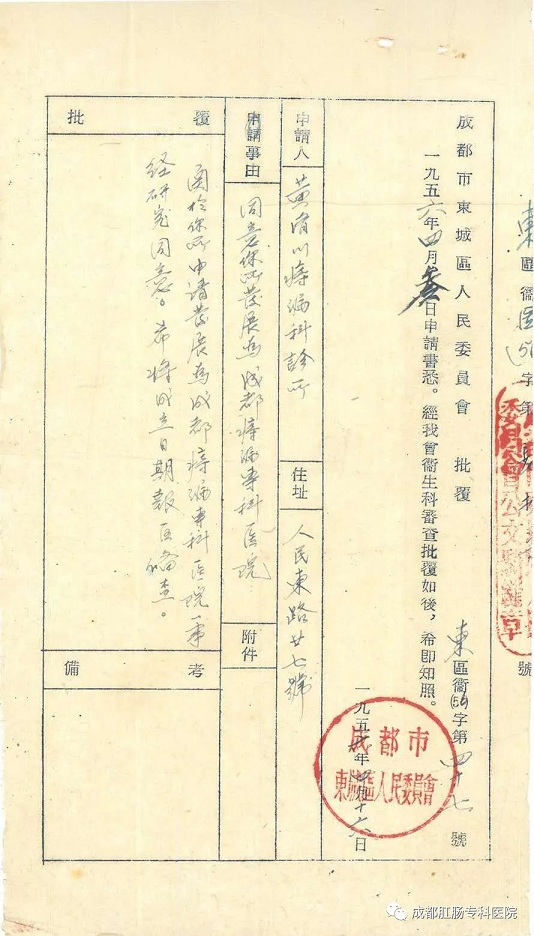 成都市東城區人民委員會 批覆
東區衞(56)字第四十七號
一九五六年四月叁日申請書悉。經我會衞生科審查批覆如後，希即知照。
一九五六年四月十六日
申請人
黄済川痔瘻科診所
住址
人民東路廿七號
申請事由
同意你所發展為成都痔瘻專科医院
附件
批覆
関於你所申请發展為成都痔瘻專科医院一事
经研究同意。希将成立日期報區备查。
備考
東區衞
(56)字第
號
委員會公文騎縫章
成都市
東城區人民委員會
成都肛肠专科医院